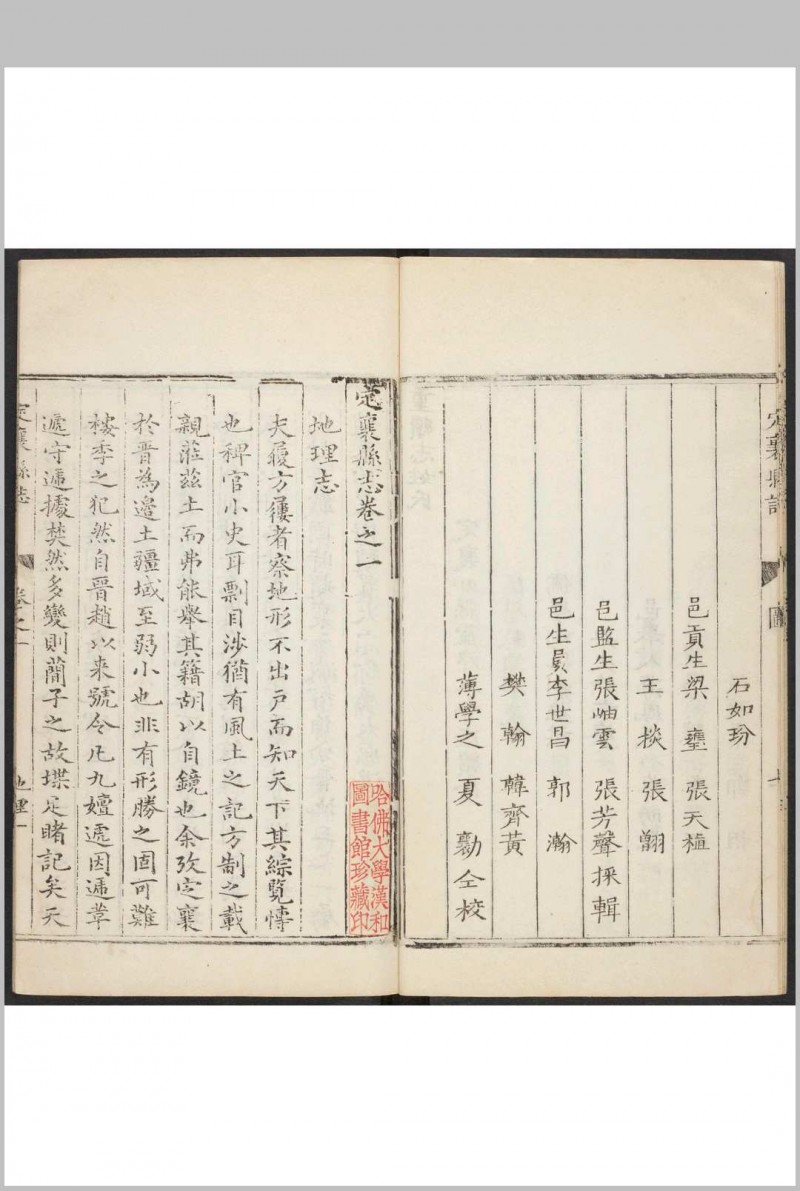 定襄縣志
圖
石如玢
邑貢生梁 㙲 張天植
王 棪 張 翮
邑監生張岫雲 張芳聲採輯
邑生員李世昌 郭 瀚
樊 翰 韓齊黃
薄學之 夏 勷仝校
定襄縣志卷之一
地理志
夫履方屨者察地形不出戶而知天下其綜覽慱
也稗官小史耳剽目涉猶有風土之記方制之載
親蒞茲土而弗能舉其籍胡以自鏡也余攷定襄
於晉為邊土疆域至弱小也非有形勝之固可難
樓季之犯然自晉趙以来號令凡九嬗遞因遞革
遞守遞據棼然多變則藺子之故堞足睹記矣天
定襄縣志
卷之一
地理一
哈佛大學漢和
圖書館珍藏印